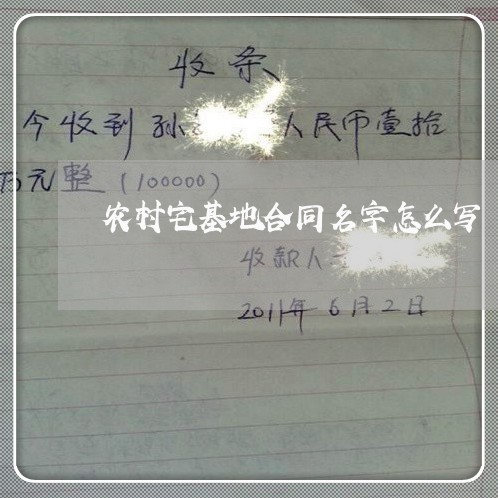 收条
今收到孙 人民币壹拾
万元整（100000）
农村宅基地合同名字怎么写
收款人
2011年6月2日